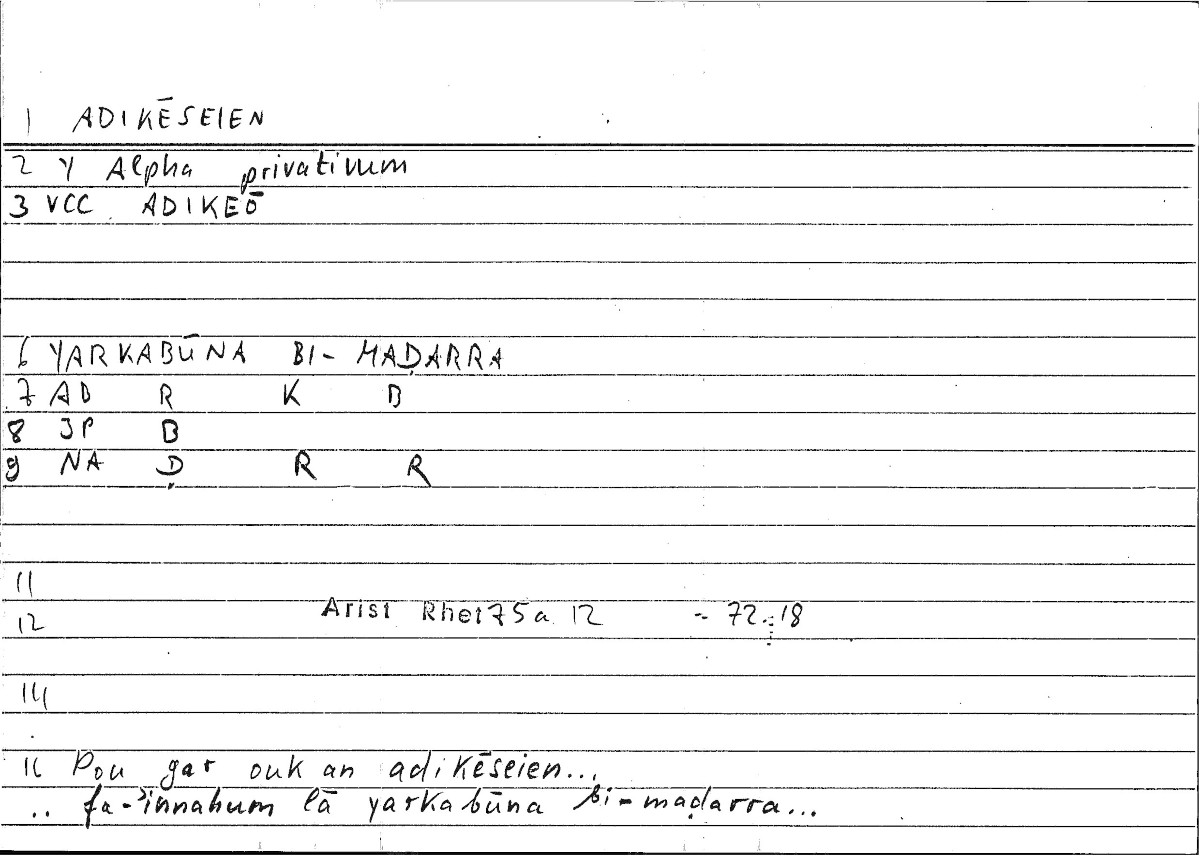 1 ADIKĒSEIEN
2 Y Alpha privativum
3 VCC ADIKEŌ
6 YARKABŪNA BI- MAḌARRA
7 AD R K B
8 JP B
9 NA Ḍ R R
11
12 Arist Rhet 75a 12 ~ 72.18
14
16 Pou gar ouk an adikēseien...
.. fa-'innahum lā yarkabūna bi-maḍarra...